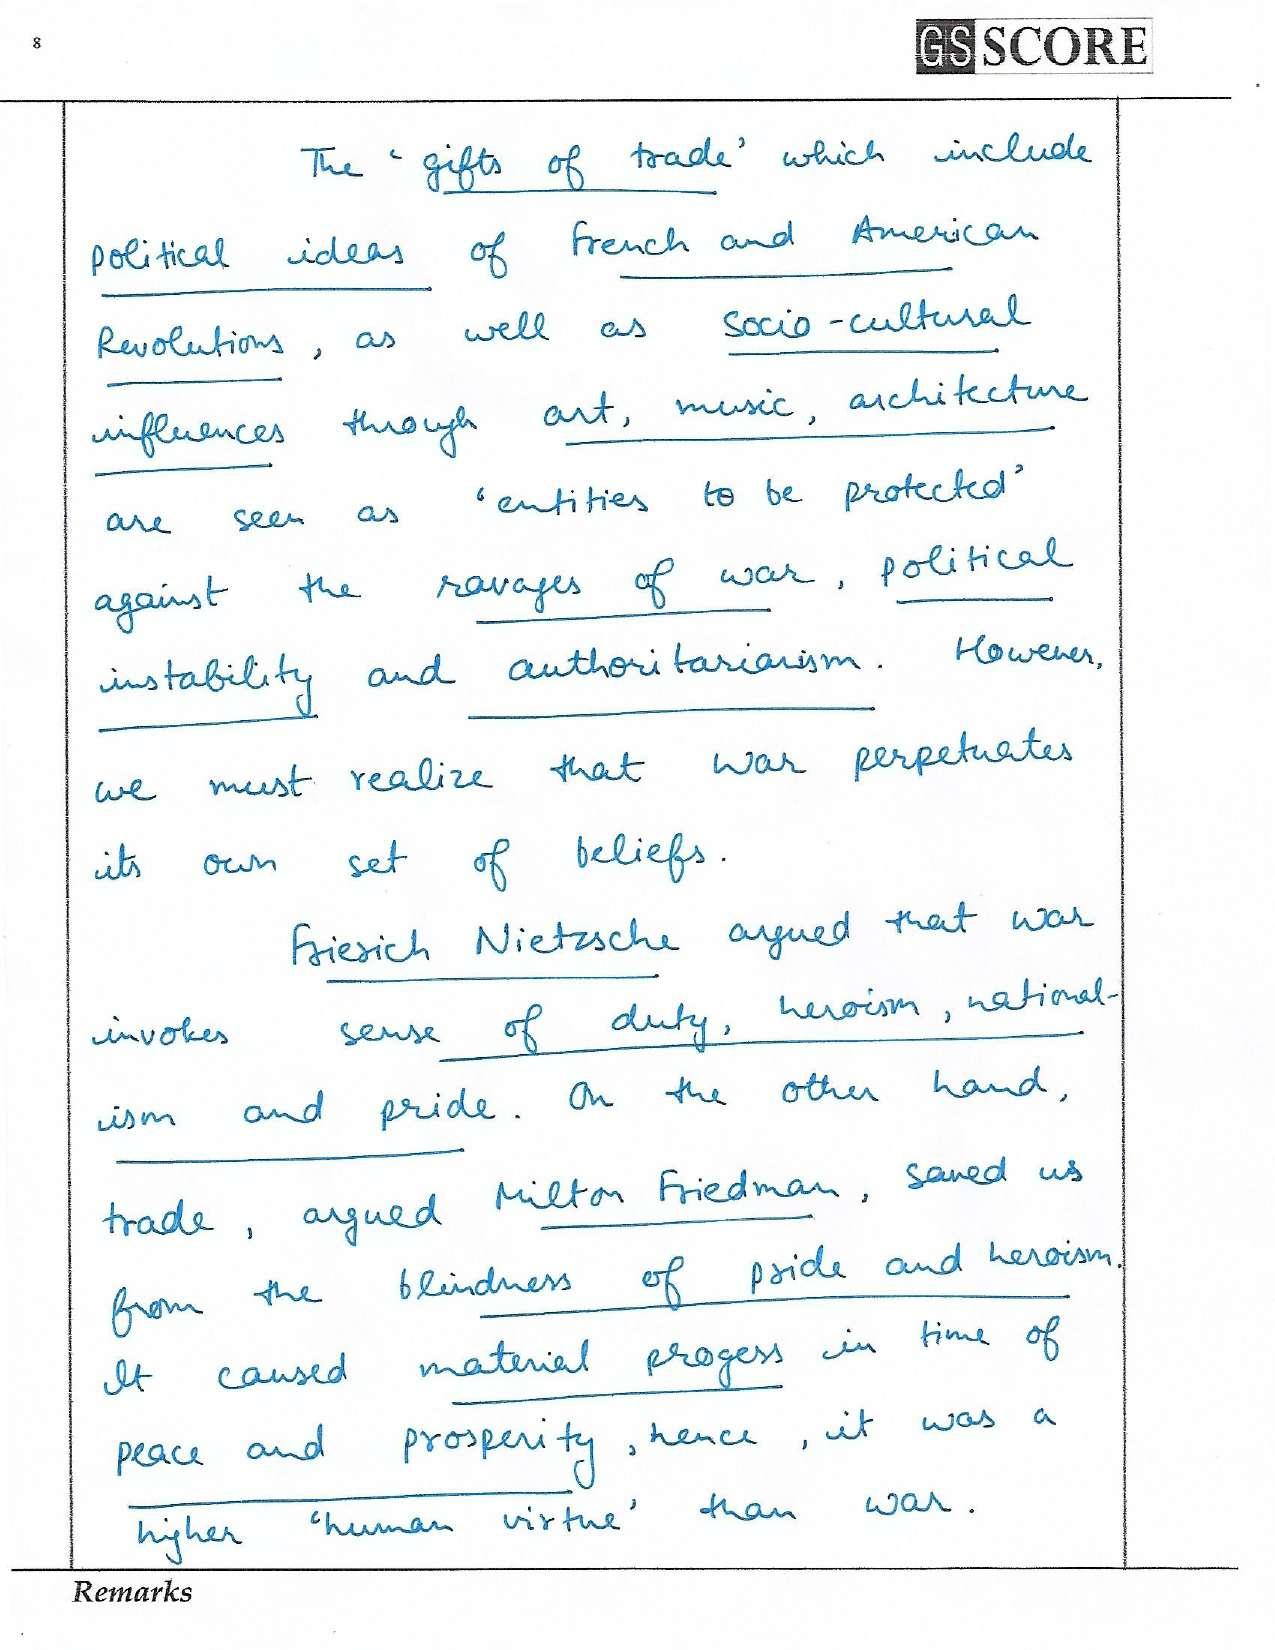 8
GS SCORE
The 'gifts of trade' which include
political ideas of French and American
Revolutions, as well as socio-cultural
influences through art, music, architecture
are seen as 'entities to be protected'
against the ravages of war, political
instability and authoritarianism. However,
we must realize that war perpetuates
its own set of beliefs.
Friesich Nietzsche argued that war
invokes sense of duty, heroism, national-
ism and pride. On the other hand,
trade, argued Milton Friedman, saved us
from the blindness of pride and heroism.
It caused material progess in time of
peace and prosperity, hence, it was a
higher 'human virtue' than war.
Remarks